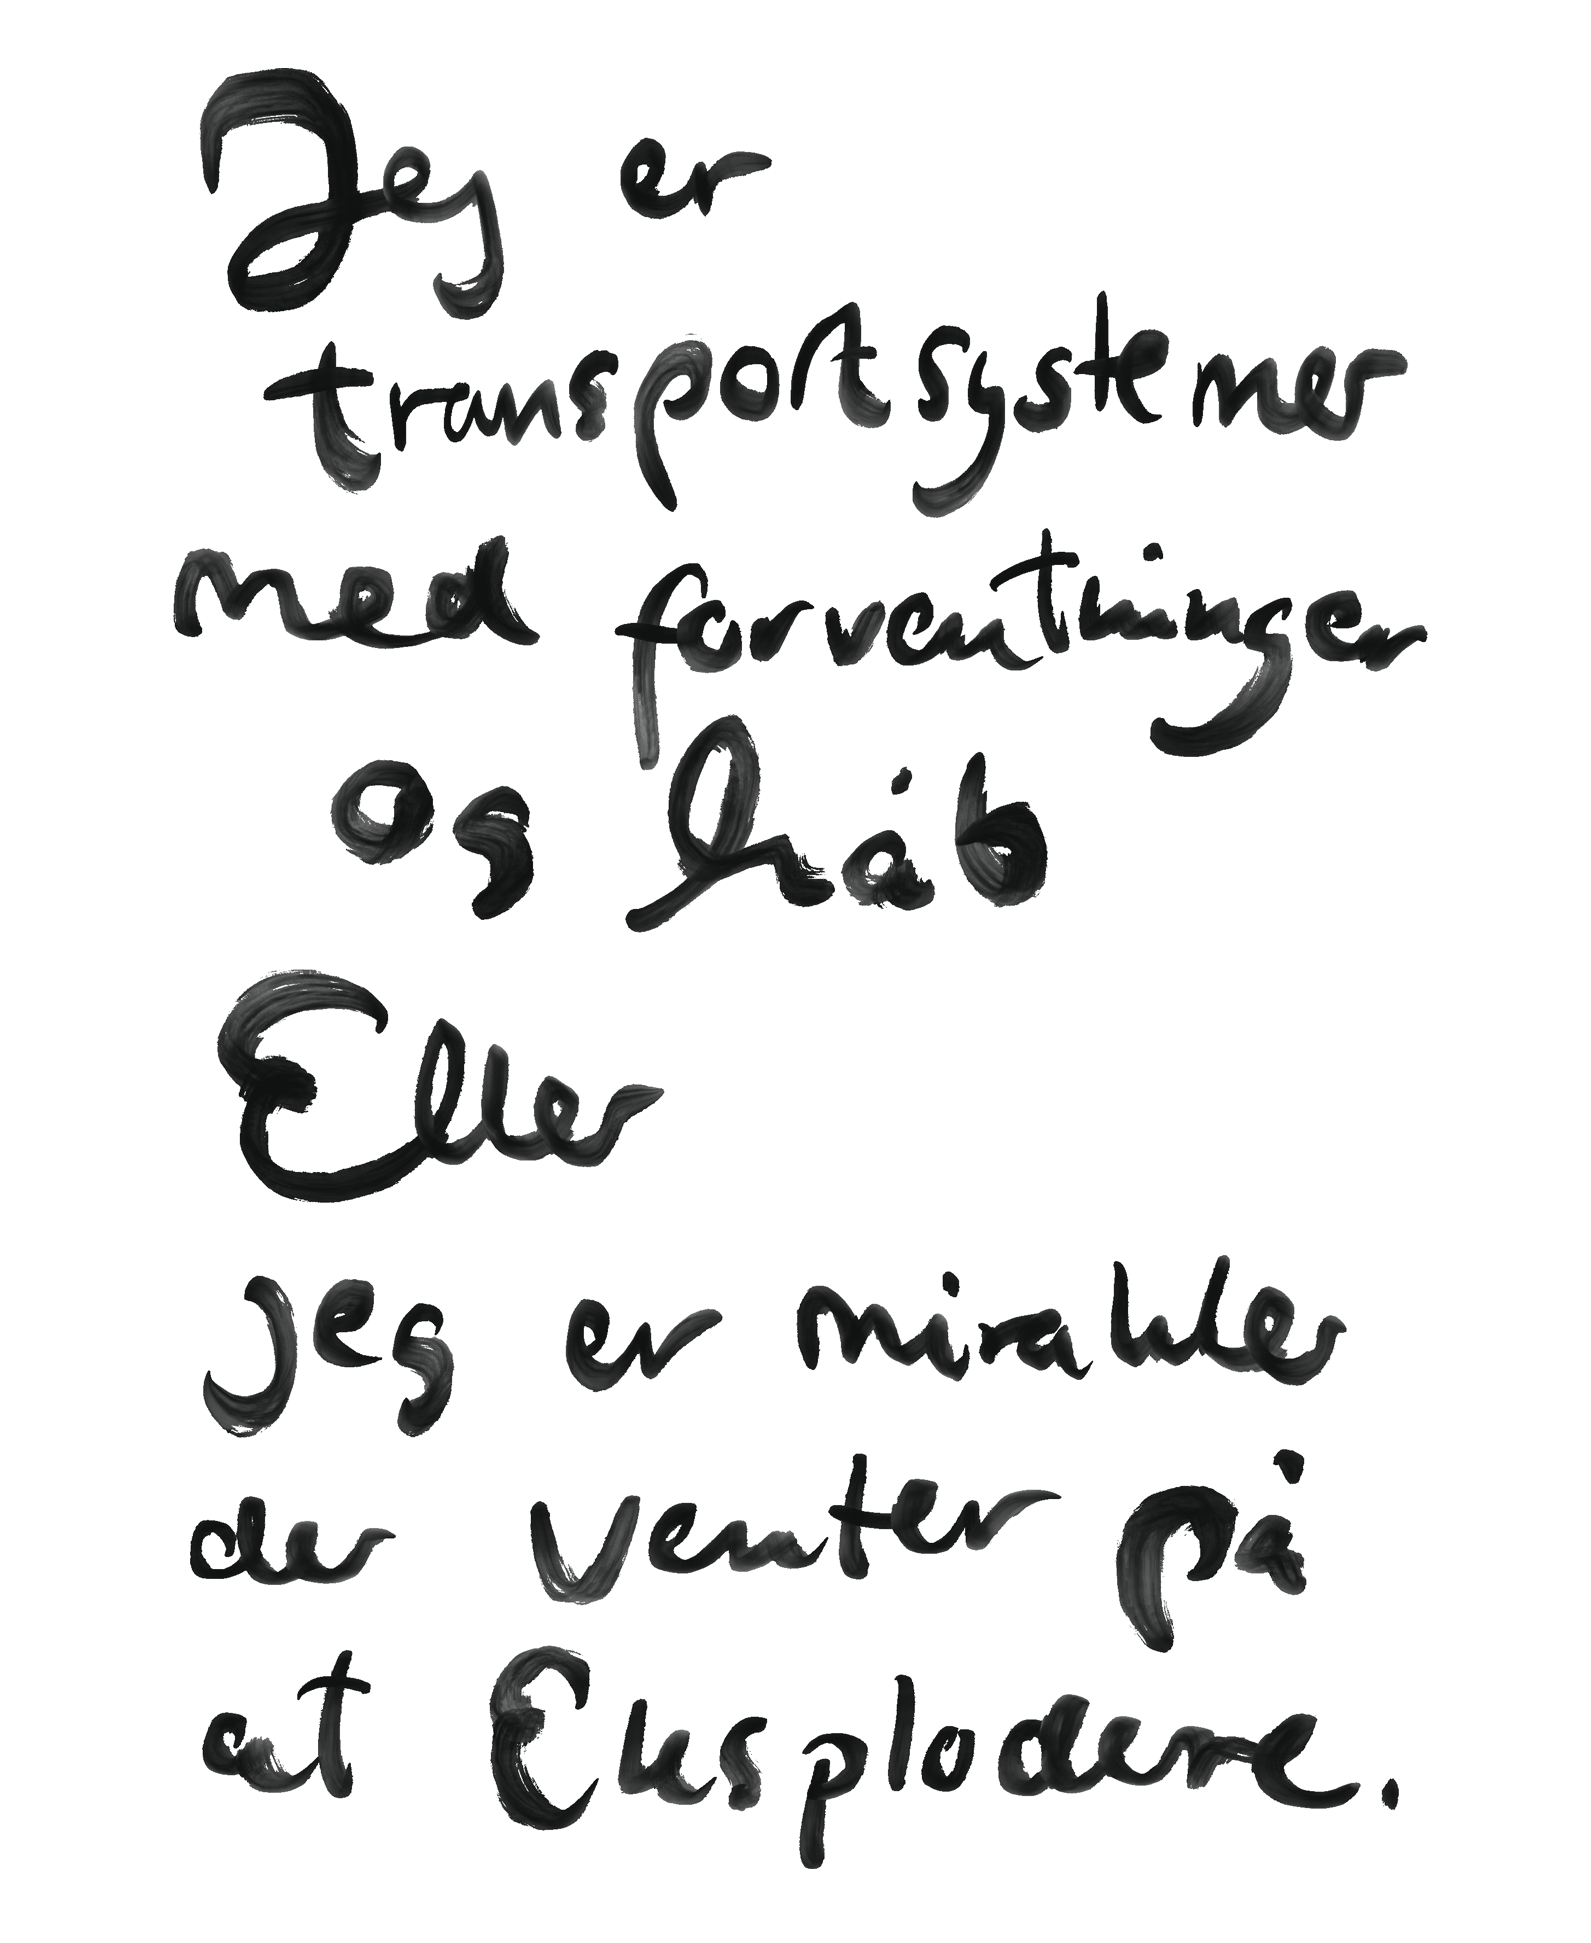 Jeg er
transportsystemer
med forventninger
og håb
Eller
jeg er mirakler
der venter på
at Eksplodere.